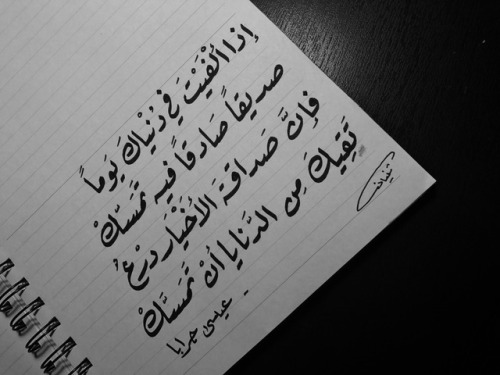 إذا ألْفَيْتَ في دُنْياكَ يَوماً
صديقاً صَادقاً فيه تمسّكْ
فإنَّ صَداقة الأخْيَار دِرْعٌ
تَقِيكَ مِن الدَّنايا أنْ تَمَسَّكْ
- عيسى جرابا